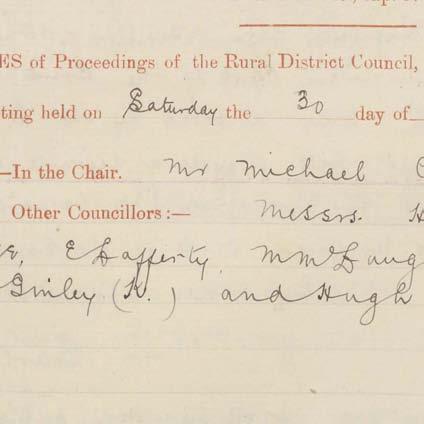 ES of Proceedings of the Rural District Council,
ting held on Saturday the 30 day of
—In the Chair. Mr Michael
Other Councillors:— Messrs. H
E Lafferty, M McLaug
Ginley (K.) and Hugh